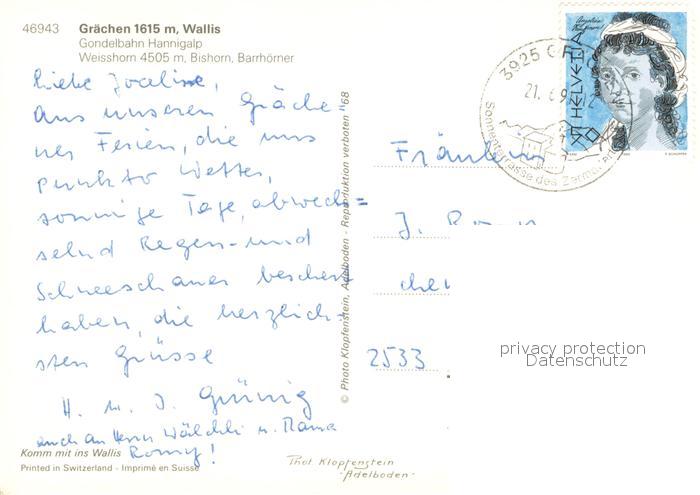 46943 Grächen 1615 m, Wallis
Gondelbahn Hannigalp
Weisshorn 4505 m, Bishorn, Barrhörner
Liebe Joceline,
aus unseren Gräche-
ner Ferien, die uns
punkto Wetter,
sonnige Tage, abwech=
selnd Regen- und
Schneeschauer beschert
haben, die herzlich-
sten Grüsse
H. u. J. Grünig
auch an Herrn Wälchli u. Mama
Romy!
Komm mit ins Wallis
Printed in Switzerland - Imprimé en Suisse
© Photo Klopfenstein, Adelboden - Reproduktion verboten '68
Phot Klopfenstein
-Adelboden-
3925 G
21. 6. 9
Sonnenterrasse des Zerma
HELVETIA
80
Fräulein
J.
2533
privacy protection
Datenschutz